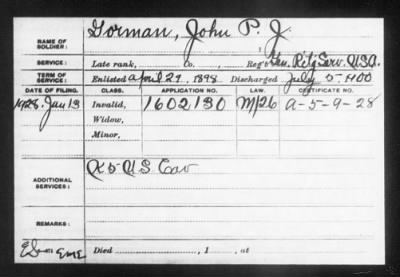 NAME OF SOLDIER: Gorman, John P. J.
SERVICE: Late rank, Co., Reg't Gen. Rct'g Serv. USA.
TERM OF SERVICE: Enlisted April 29, 1898 Discharged July 5-1900
DATE OF FILING. CLASS. APPLICATION NO. LAW. CERTIFICATE NO.
1928. Jan 13 Invalid, 1602130 M/26 A-5-9-28
Widow,
Minor,
ADDITIONAL SERVICES: K 5 U.S. Cav
REMARKS:
EME Died , 1 , at